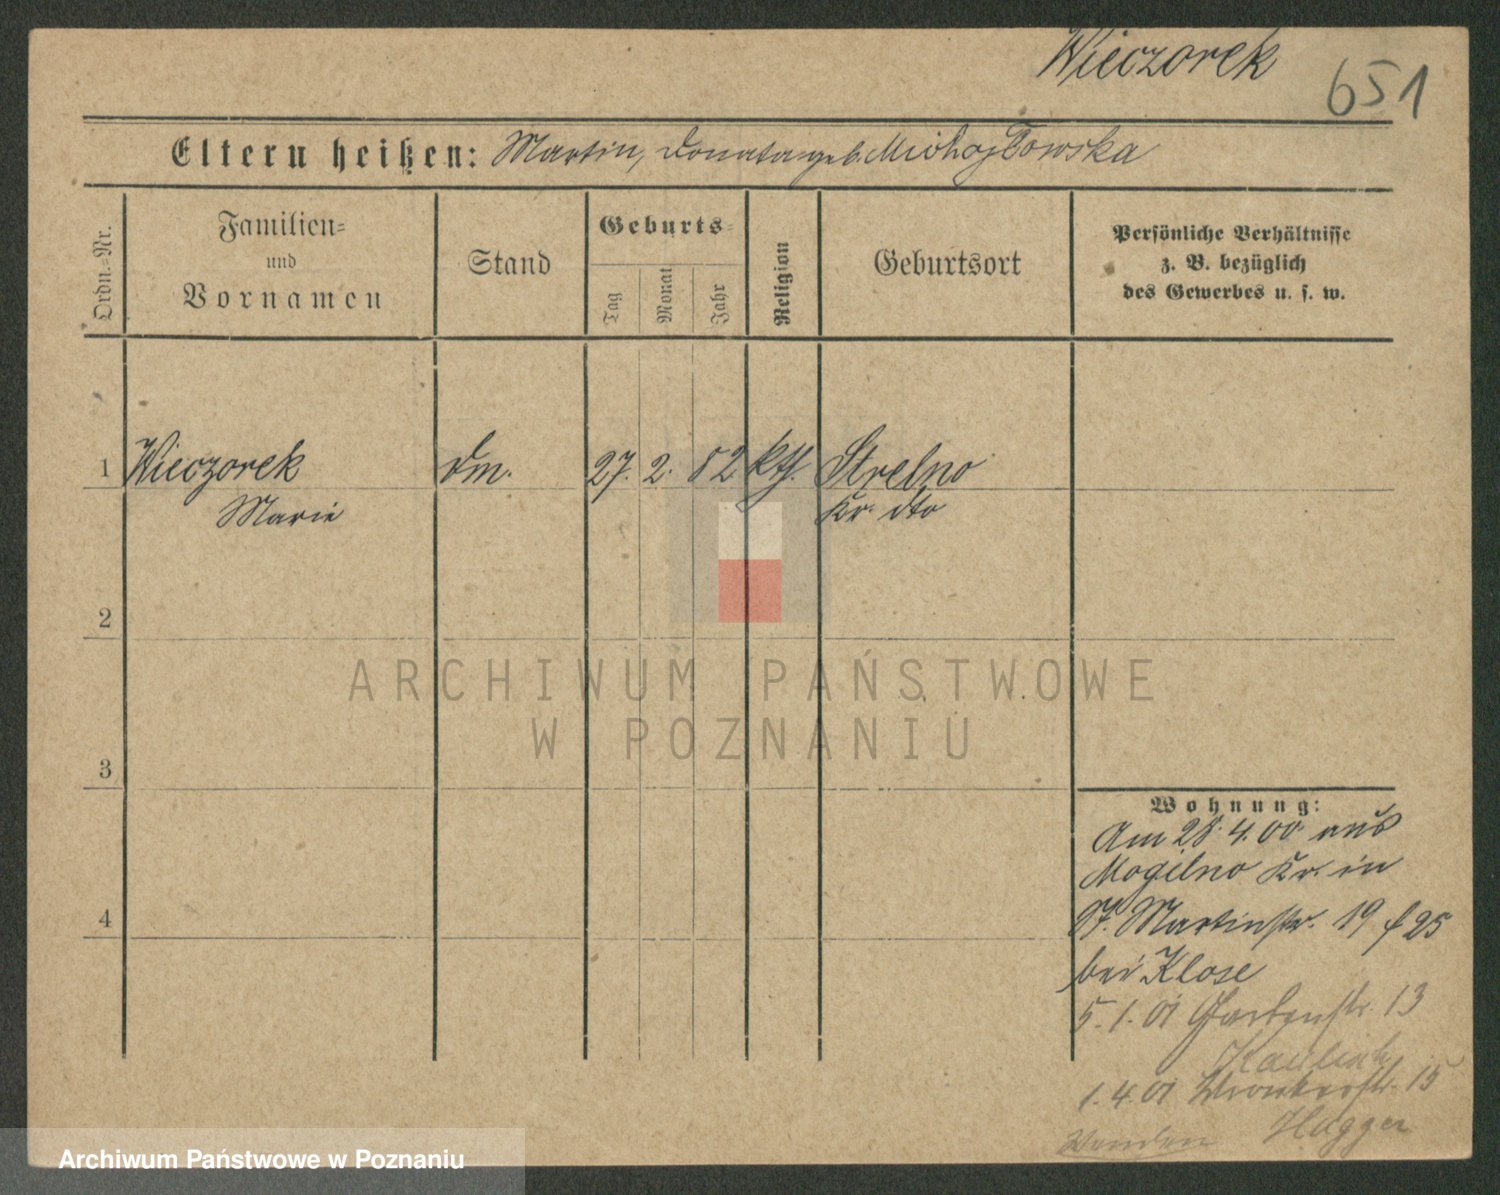 Wieczorek
651
Eltern heißen: Martin, Donata geb. Michajłowska
Ordn.-Nr.
Familien-
und
Vornamen
Stand
Geburts-
Tag
Monat
Jahr
Religion
Geburtsort
Persönliche Verhältnisse
z. B. bezüglich
des Gewerbes u. s. w.
1 Wieczorek dm. 27. 2. 82 kth. Strelno
Marie Kr. dto
2
3
4
Wohnung:
Am 28. 4. 00 aus
Mogilno Kr. in
St. Martinstr. 19 f 25
bei Klose
5. 1. 01 Gartenstr. 13
1. 4. 01 Wronkerstr. 15
Hagger
Wenden
ARCHIWUM PAŃSTWOWE
W POZNANIU
Archiwum Państwowe w Poznaniu